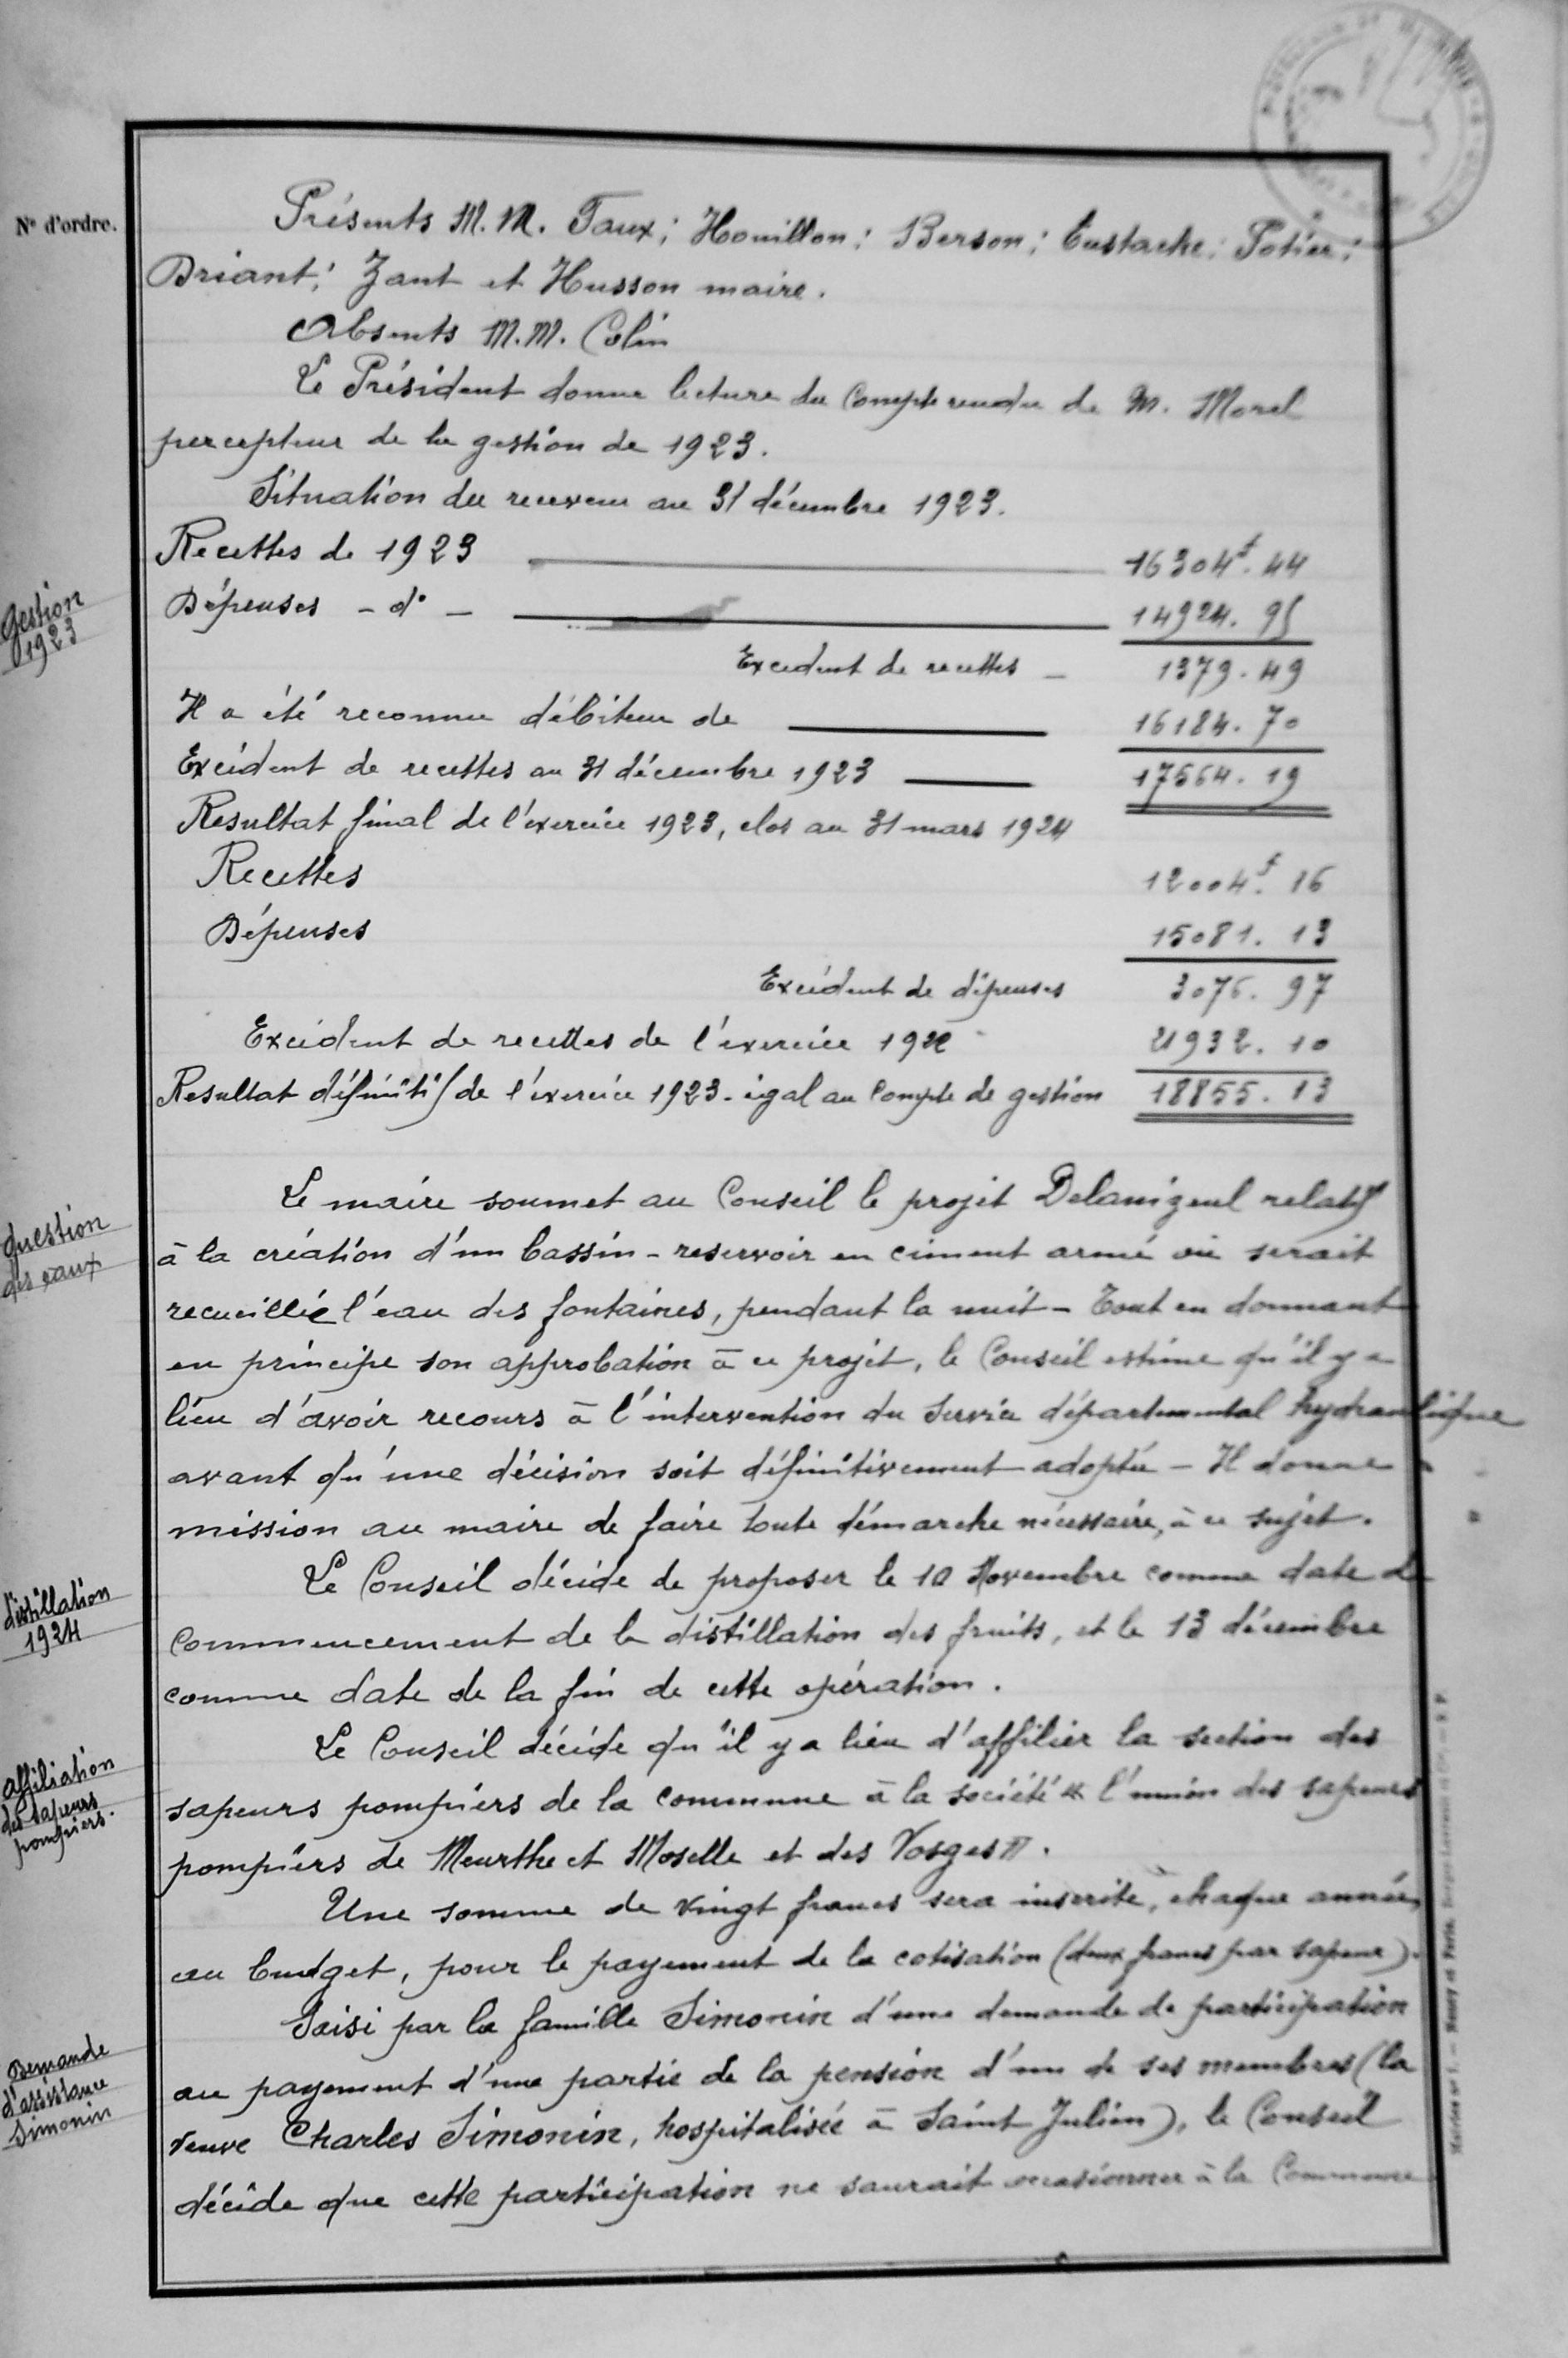 N° d'ordre.
Présents M.M. Faux; Houillon; Berson; Eustache; Potier;
Briant; Zant et Husson maire.
Absents M.M. Colin
Le Président donne lecture du Compte rendu de M. Morel
percepteur de la gestion de 1923.
Situation du receveur au 31 décembre 1923.
Gestion
1923
Recettes de 1923 16304f.44
Dépenses - d° - 14924.95
Excedent de recettes - 1379.49
Il a été reconnu débiteur de 16184.70
Excédent de recettes au 31 décembre 1923 17564.19
Resultat final de l'exercice 1923, clos au 31 mars 1924
Recettes 12004f.16
Dépenses 15081.13
Excédent de dépenses 3076.97
Excédent de recettes de l'exercice 1922 21932.10
Resultat définitif de l'exercice 1923 - égal au Compte de gestion 18855.13
Question
des eaux
Le maire soumet au Conseil le projet relatif
à la création d'un bassin-reservoir en ciment armé où serait
recueillie l'eau des fontaines, pendant la nuit - Tout en donnant
en principe son approbation à ce projet, le Conseil estime qu'il y a
lieu d'avoir recours à l'intervention du Service départemental hydraulique
avant qu'une décision soit définitivement adoptée - Il donne
mission au maire de faire toute démarche nécessaire, à ce sujet.
distillation
1924
Le Conseil décide de proposer le 10 Novembre comme date de
commencement de la distillation des fruits, et le 13 décembre
comme date de la fin de cette opération.
affiliation
des sapeurs
pompiers.
Le Conseil décide qu'il y a lieu d'affilier la section des
sapeurs pompiers de la commune à la société « l'union des sapeurs
pompiers de Meurthe et Moselle et des Vosges ».
Une somme de vingt francs sera inscrite, chaque année,
au budget, pour le payement de la cotisation (deux francs par sapeur).
Demande
d'assistance
Simonin
Saisi par la famille Simonin d'une demande de participation
au payement d'une partie de la pension d'un de ses membres (la
veuve Charles Simonin, hospitalisée à Saint Julien), le Conseil
décide que cette participation ne saurait occasionner à la Commune